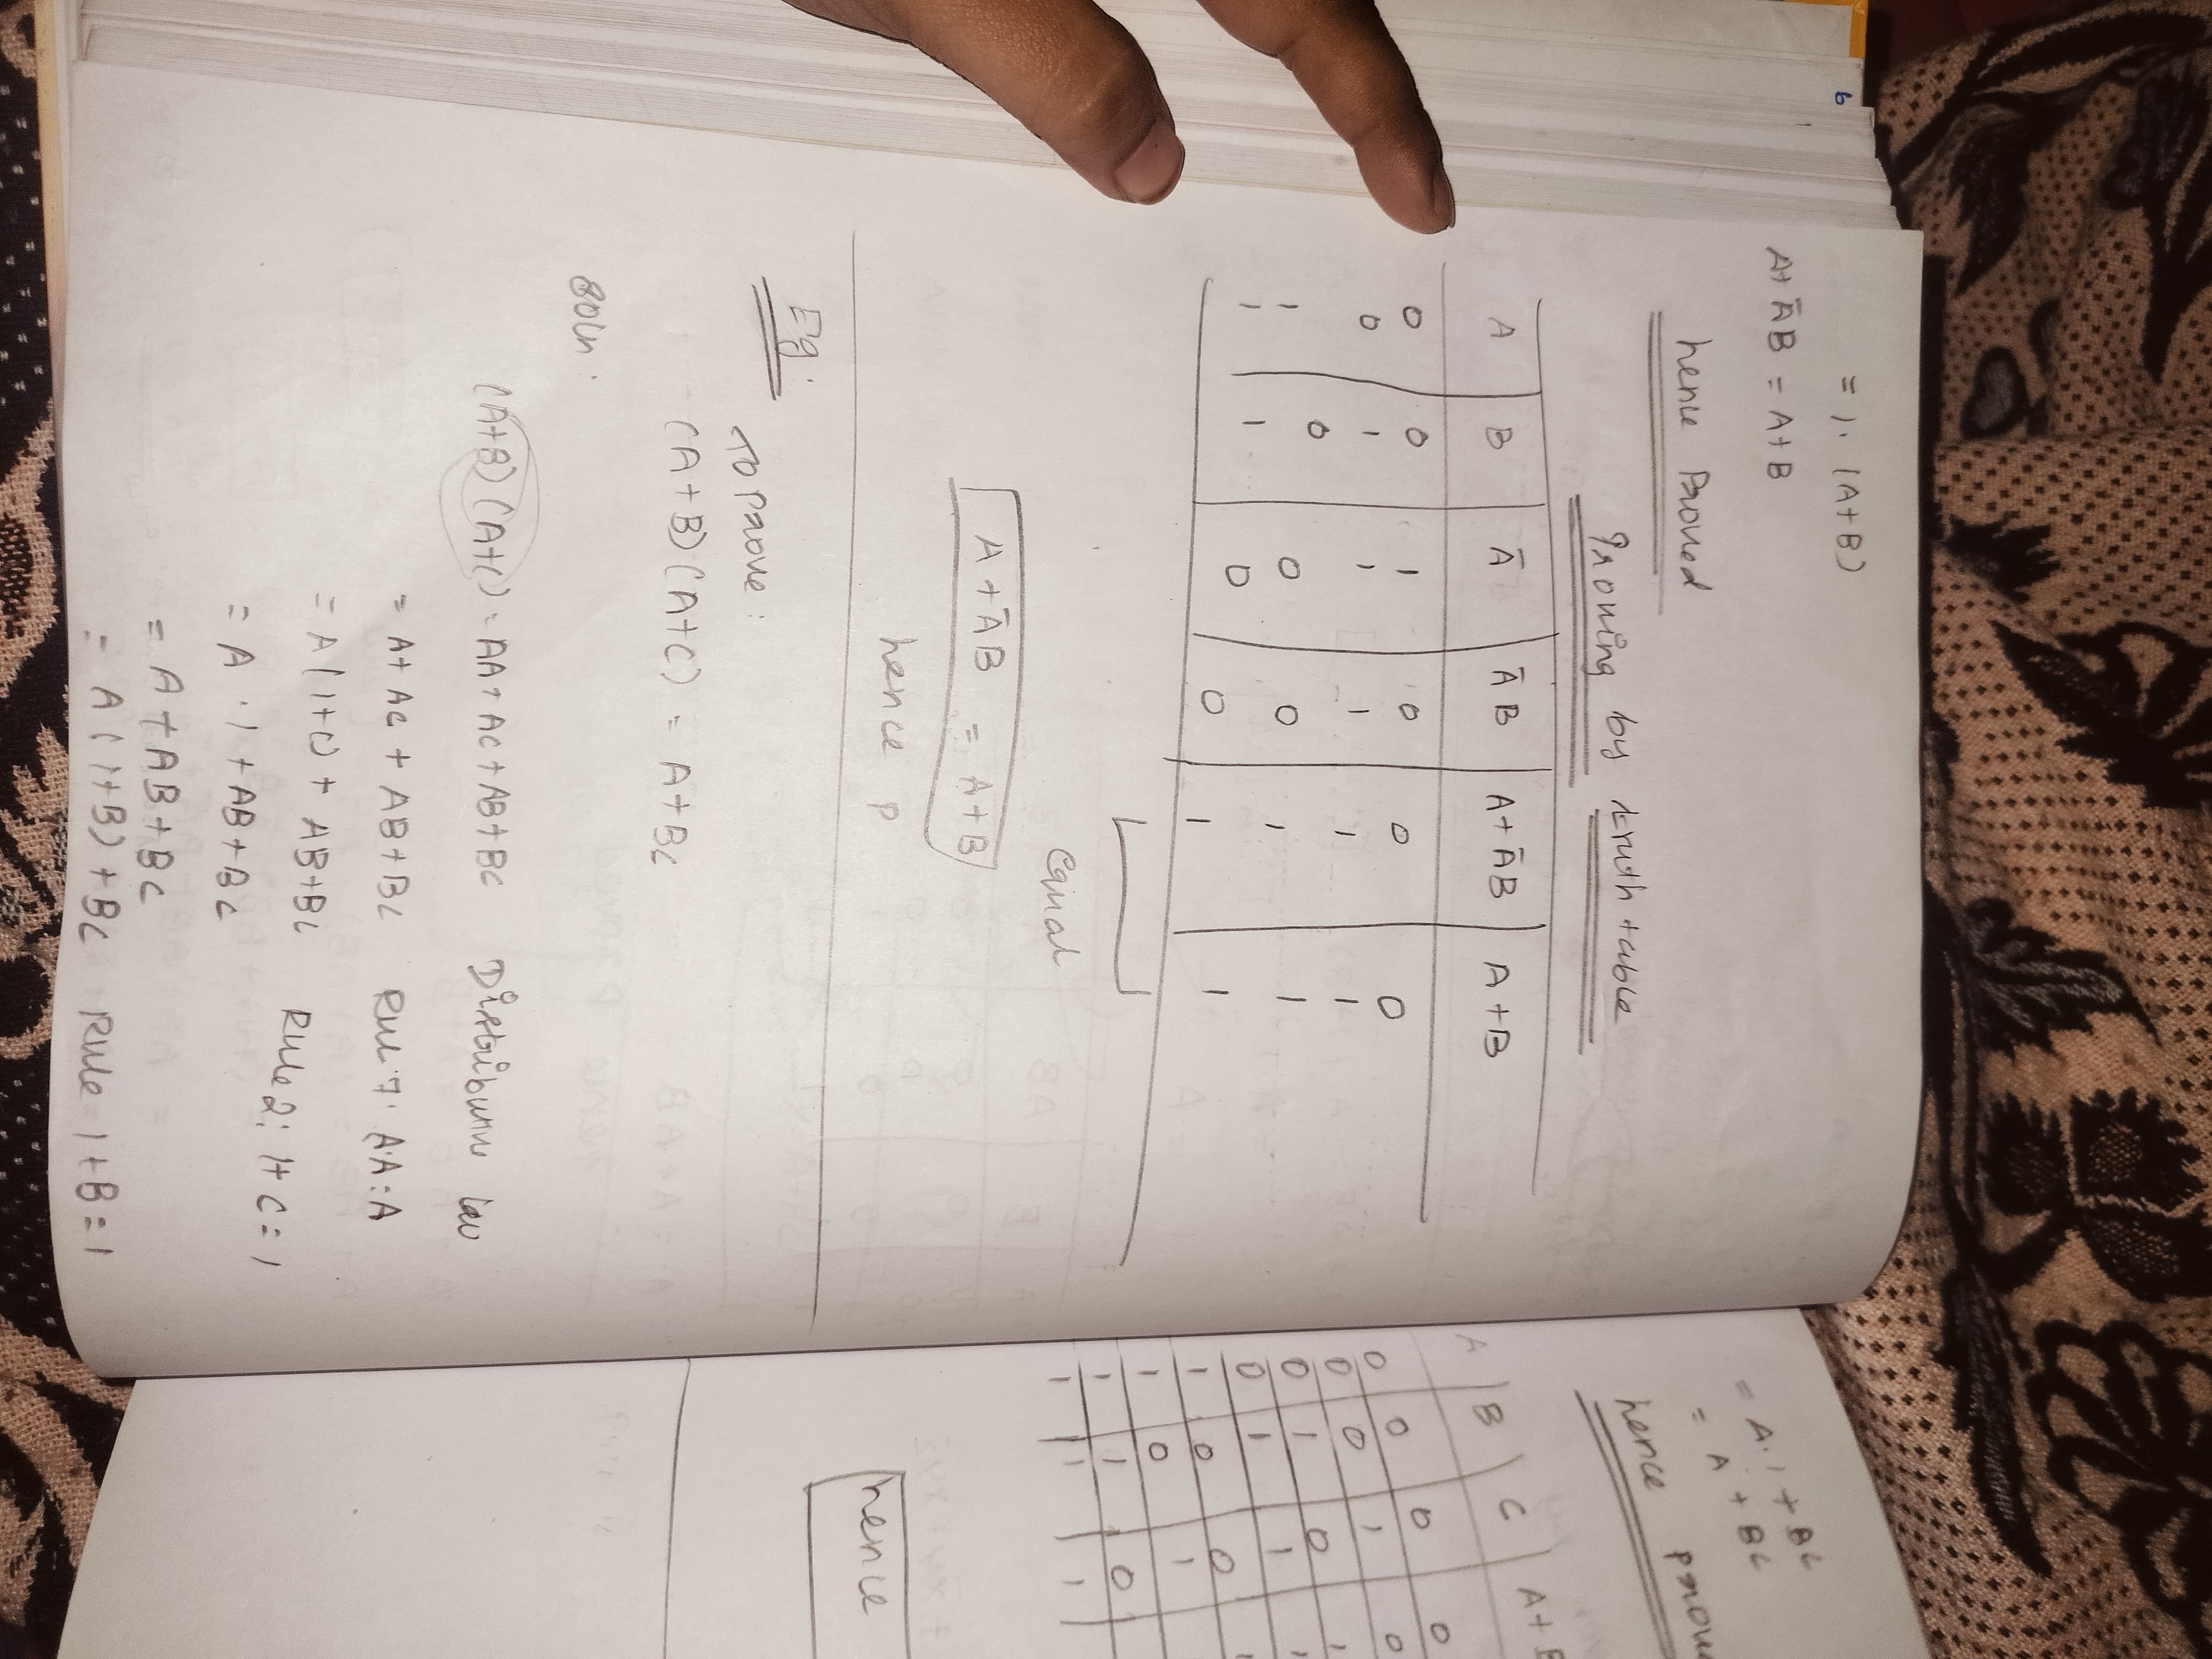 = 1. (A+B)
A+ĀB = A+B
hence Proved
Proving by truth table
A B Ā ĀB A+ĀB A+B
0 0 1 0 0 0
0 1 1 1 1 1
1 0 0 0 1 1
1 1 0 0 1 1
Equal
A+ĀB = A+B
hence p
Eg:
To Prove:
(A+B)(A+C) = A+BC
Soln:
(A+B)(A+C) = AA+AC+AB+BC Distributive law
= A+AC+AB+BC Rule 7: A·A:A
= A(1+C)+AB+BC Rule 2: 1+C=1
= A·1+AB+BC
= A+AB+BC
= A(1+B)+BC Rule 1+B=1
= A.1+BC
= A+BC
hence
A B C
0 0 0 0
0 0 1 0
0 1 0 1
0 1 1 1
1 0 0
1 0 1
1 1 0
1 1 1
hence